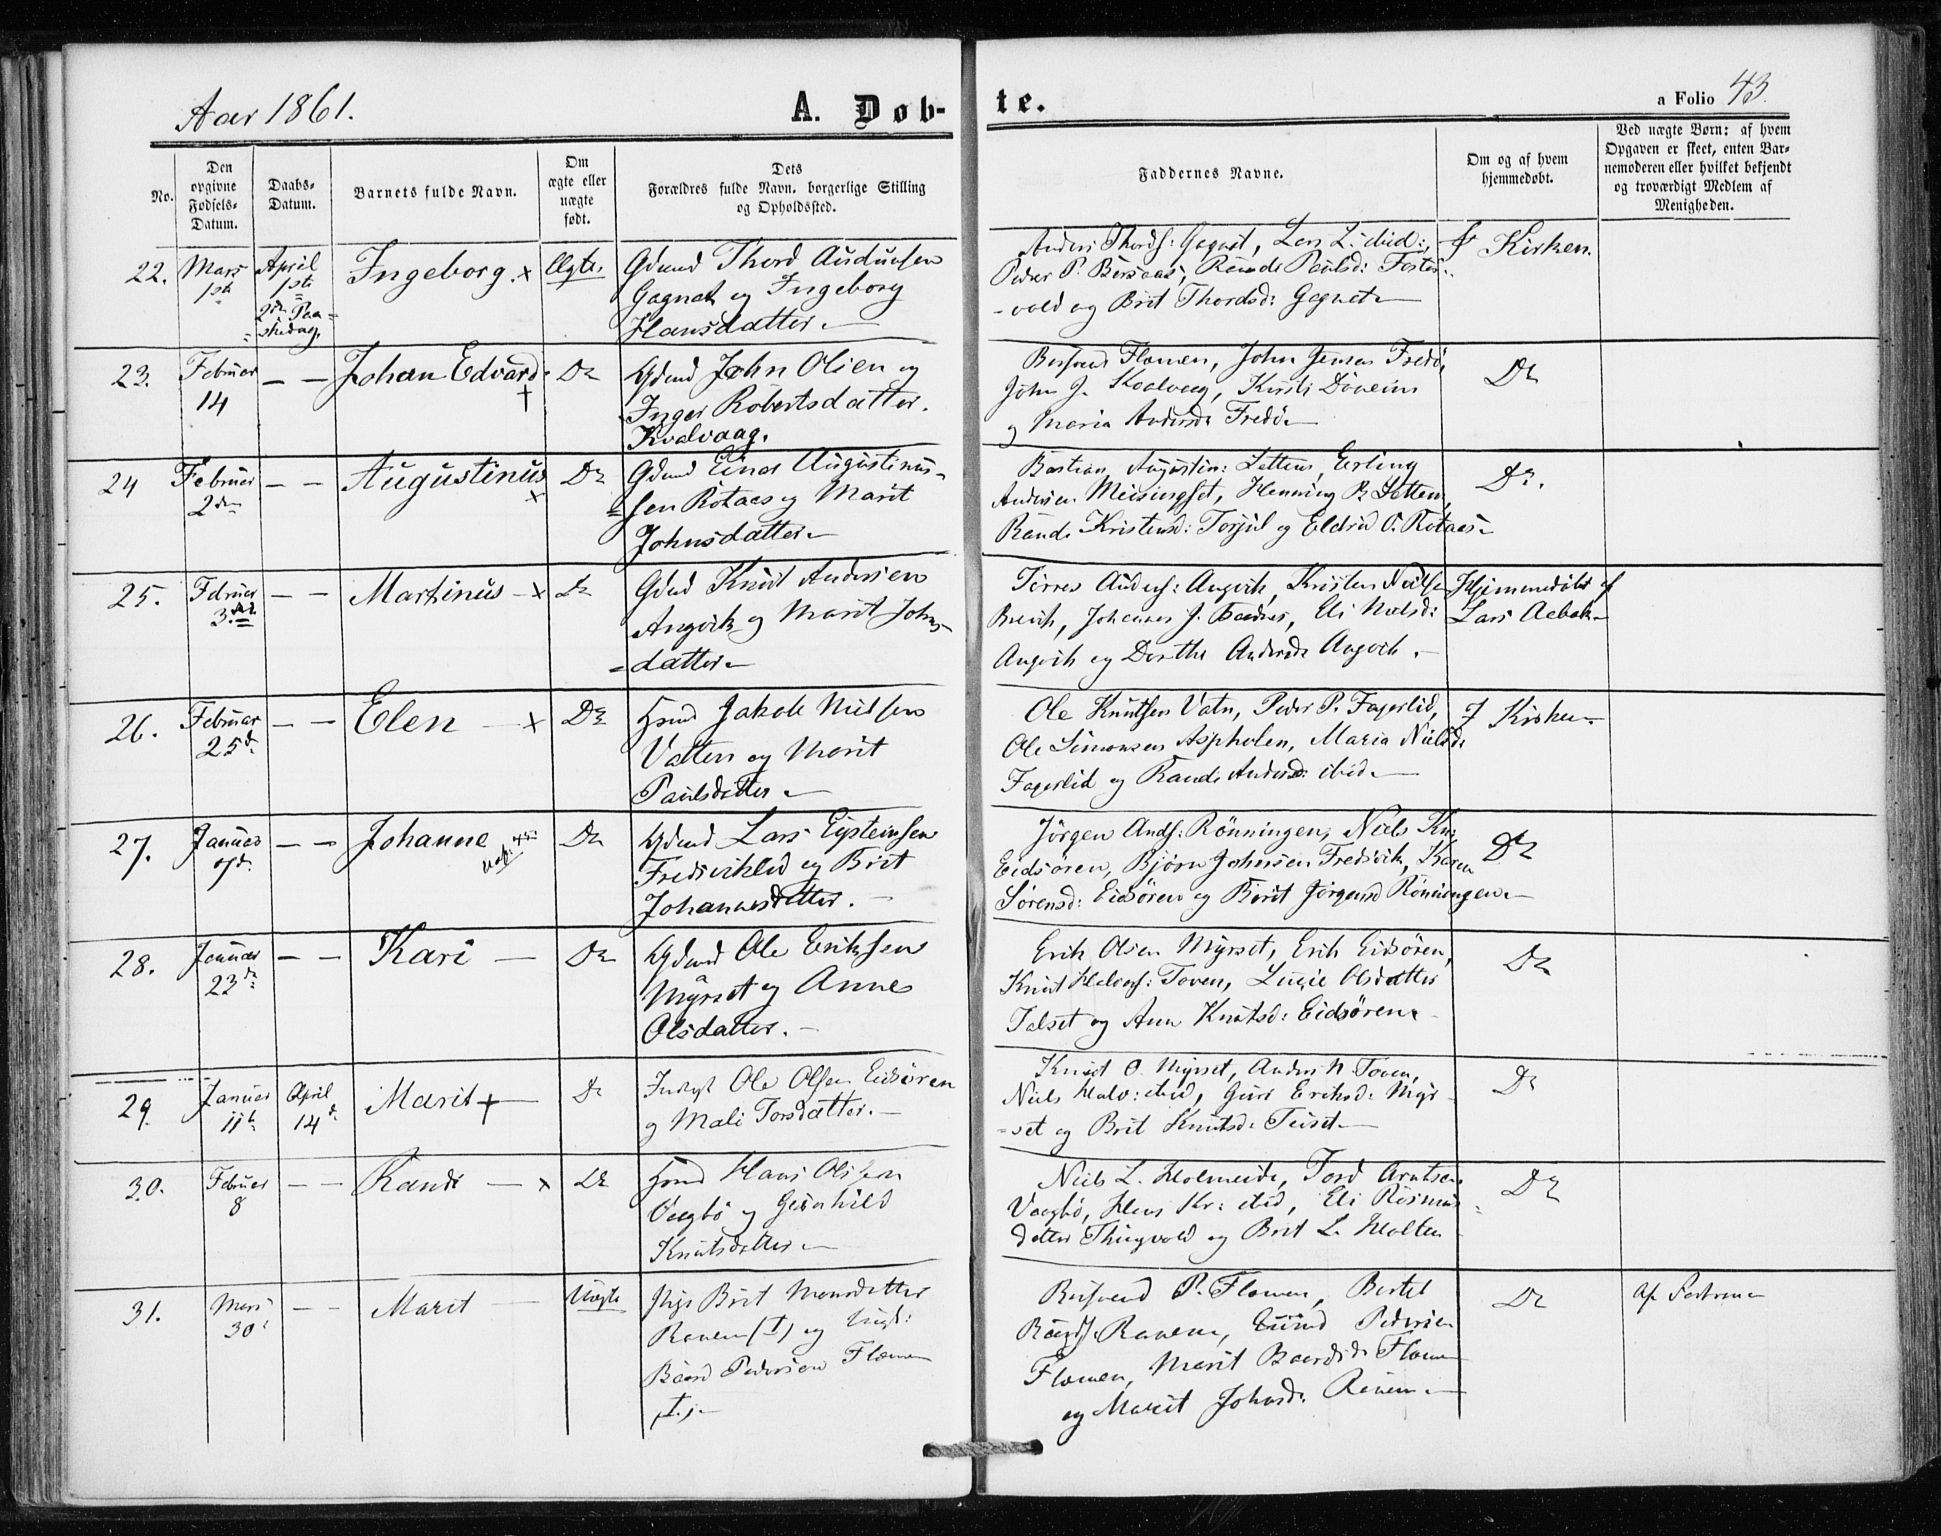 Aar 1861.
A. Døb-
te.
a Folio 43.
No.
Den
opgivne
Fødsels-
Datum.
Daabs-
Datum.
Barnets fulde Navn.
Om
ægte eller
uægte
født.
Dets
Forældres fulde Navn, borgerlige Stilling
og Opholdssted.
Faddernes Navne.
Om og af hvem
hjemmedøbt.
Ved uægte Børn: af hvem
Opgaven er skeet, enten Bar-
nemoderen eller hvilket bekjendt
og troværdigt Medlem af
Menigheden.
22.
Mars
1ste
April
1ste
2den Paa=
=skedag.
Ingeborg. x
Ægte.
Gdmd Thord Audunsen
Gagnat og Ingeborg
Hansdatter.
Anders Thords: Gagnat, Lars L. ibid:,
Peder P. Bersaas, Rande Paulsd: Foster
-vold og Brit Thordsd: Gagnet
I Kirken.
23.
Februar
14
— —
Johan Edvard.
†
Do
Gdmd John Olsen og
Inger Robertsdatter.
Kvalvaag.
Flemen, John Jensen Fredø,
John J. Kvalvaag, Kirsti
og Maria Andersd: Fredø
Do
24
Februar
2den
— —
Augustinus
x
Do
Gdmd Einar Augustinus-
=sen Rotaas og Marit
Johnsdatter
Bastian Augustin: Settem, Erling
Andersen Meisingset, Henning B. Settem,
Rande Kristensd: Torjul og Eldrid O. Rotaas
Do.
25.
Februar
3die
— —
Martinus — x
Do
Gdmd Knud Andersen
Angvik og Marit Johns-
=datter
Torres Anders: Angvik, Kristen Nielsen
Brevik, Johannes J. Eli Nielsd:
Angvik og Dorthe Andersd: Angvik.
Hjemmedøbt af
Lars Aebak
26.
Februar
25de
— —
Elen — x
Do
Hsmd Jakob Nielsen
Vatten og Marit
Paulsdatter
Ole Knutsen Vatn, Peder P. Fagerlid,
Ole Simonsen Aspholen, Maria Nielsd:
Fagerlid og Rande Andersd: ibid.
I Kirken
27.
Januar
7de
— —
Johanne
Do
Gdmd Lars Eysteinsen
Fredsviklid og Brit
Johannesdatter.
Jørgen Ands: Rønningen, Niels Kn:
Eidsøren, Bjørn Johnsen Fredsvik, Karen
Sørensd: Eidsøren og Berit Jørgensd Rønningen
Do
28.
Januar
23de
— —
Kari —
Do
Gdmd Ole Eriksen
Myrset og Anne
Olsdatter.
Erik Olsen Myrset, Erik Eidsøren,
Knut Halvors: Toven, Lucie Olsdatter
Talset og Ane Knutsd: Eidsøren.
Do
29.
Januar
11te
April
14de
Marit x
Do
Inderst Ole Olsen Eidsøren
og Mali Torsdatter.
Knut O. Myrset, Anders N. Toven,
Niels Halv: ibid, Guri Eriksd: Myr
-set og Brit Knutsd: Teiset
Do
30.
Februar
8
— —
Rande — x
Do
Hsmd Hans Olsen
Vaagbø og Gunhild
Knutsdatter
Niels L. Holmeide, Tord Arntsen
Vaagbø, Hans Kr: ibid, Eli Rasmus
datter Thingvold og Brit L. Holten
Do
31.
Mars
30te
— —
Marit
Uægte
Pige Brit Monsdatter
Ranem (I) og Ungk:
Baard Pedersen Flemen
(I.)
P. Flemen, Bertel
Ranem, Eivind Pedersen
Flemen, Marit Baardsd: Flemen
og Marit Johnsd: Ranem.
Do
Af